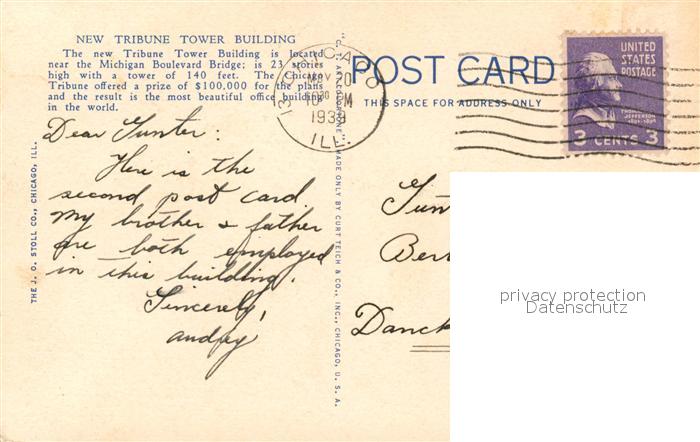 NEW TRIBUNE TOWER BUILDING
The new Tribune Tower Building is located
near the Michigan Boulevard Bridge; is 23 stories
high with a tower of 140 feet. The Chicago
Tribune offered a prize of $100,000 for the plans
and the result is the most beautiful office building
in the world.
Dear Gunter:
Here is the
second post card.
My brother & father
are both employed
in this building.
Sincerely,
Audrey
THE J. O. STOLL CO., CHICAGO, ILL.
"C. T. ART-COLORTONE" MADE ONLY BY CURT TEICH & CO., INC., CHICAGO, U. S. A.
CHICAGO
MAY 20
10 PM
1939
ILL.
POST CARD
THIS SPACE FOR ADDRESS ONLY
UNITED
STATES
POSTAGE
THOMAS
JEFFERSON
3 CENTS 3
Gun
Ber
Danck
privacy protection
Datenschutz